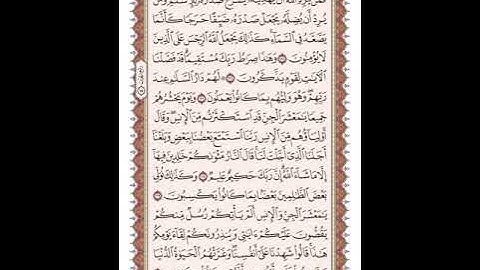 فَمَن يُرِدِ ٱللَّهُ أَن يَهْدِيَهُۥ يَشْرَحْ صَدْرَهُۥ لِلْإِسْلَٰمِ وَمَن
يُرِدْ أَن يُضِلَّهُۥ يَجْعَلْ صَدْرَهُۥ ضَيِّقًا حَرَجًا كَأَنَّمَا
يَصَّعَّدُ فِى ٱلسَّمَآءِ كَذَٰلِكَ يَجْعَلُ ٱللَّهُ ٱلرِّجْسَ عَلَى ٱلَّذِينَ
لَا يُؤْمِنُونَ وَهَٰذَا صِرَٰطُ رَبِّكَ مُسْتَقِيمًا قَدْ فَصَّلْنَا
ٱلْـَٔايَٰتِ لِقَوْمٍ يَذَّكَّرُونَ لَهُمْ دَارُ ٱلسَّلَٰمِ عِندَ
رَبِّهِمْ وَهُوَ وَلِيُّهُم بِمَا كَانُوا۟ يَعْمَلُونَ وَيَوْمَ يَحْشُرُهُمْ
جَمِيعًا يَٰمَعْشَرَ ٱلْجِنِّ قَدِ ٱسْتَكْثَرْتُم مِّنَ ٱلْإِنسِ وَقَالَ
أَوْلِيَآؤُهُم مِّنَ ٱلْإِنسِ رَبَّنَا ٱسْتَمْتَعَ بَعْضُنَا بِبَعْضٍ وَبَلَغْنَآ
أَجَلَنَا ٱلَّذِىٓ أَجَّلْتَ لَنَا قَالَ ٱلنَّارُ مَثْوَىٰكُمْ خَٰلِدِينَ فِيهَآ
إِلَّا مَا شَآءَ ٱللَّهُ إِنَّ رَبَّكَ حَكِيمٌ عَلِيمٌ وَكَذَٰلِكَ نُوَلِّى
بَعْضَ ٱلظَّٰلِمِينَ بَعْضًۢا بِمَا كَانُوا۟ يَكْسِبُونَ
يَٰمَعْشَرَ ٱلْجِنِّ وَٱلْإِنسِ أَلَمْ يَأْتِكُمْ رُسُلٌ مِّنكُمْ
يَقُصُّونَ عَلَيْكُمْ ءَايَٰتِى وَيُنذِرُونَكُمْ لِقَآءَ يَوْمِكُمْ
هَٰذَا قَالُوا۟ شَهِدْنَا عَلَىٰٓ أَنفُسِنَا وَغَرَّتْهُمُ ٱلْحَيَوٰةُ ٱلدُّنْيَا